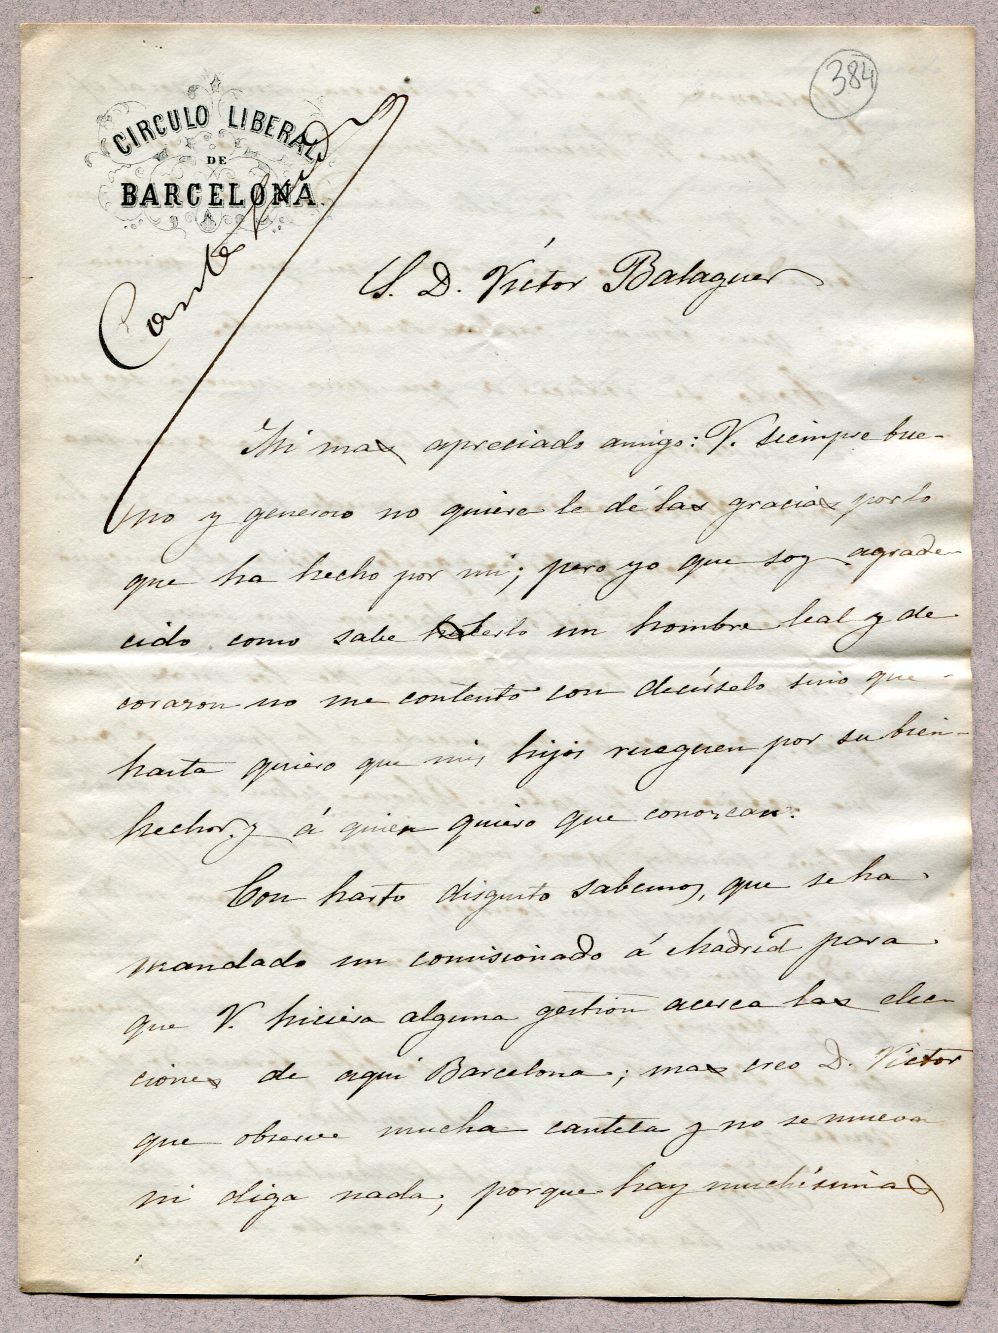 384
CIRCULO LIBERAL
DE
BARCELONA.
S. D. Víctor Balaguer
Mi mas apreciado amigo: V. siempre bue-
no y generoso no quiere le dé las gracias por lo
que ha hecho por mi; pero yo que soy agrade-
cido como sabe hacerlo un hombre leal y de
corazon no me contento con decírselo sino que
hasta quiero que mis hijos rueguen por su bien-
hechor, y á quien quiero que conozcan.
Con harto disgusto sabemos, que se ha
mandado un comisionado á Madrid para
que V. hiciera alguna gestion acerca las elec-
ciones de aqui Barcelona; mas creo D. Víctor
que observe mucha cautela y no se mueva
ni diga nada, porque hay muchísimas